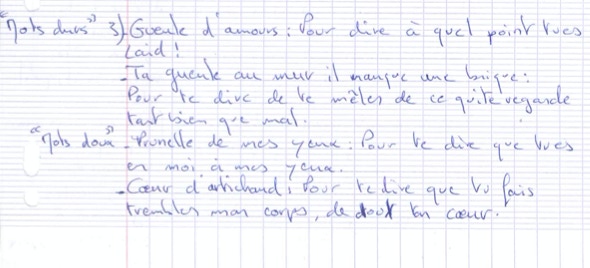 "Mots durs" 3) Gueule d'amours : Pour dire à quel point tu es
Laid !
- Ta gueule au mur il manque une brique :
Pour te dire de te mêler de ce qui te regarde
tant bien que mal.
"Mots doux" - Prunelle de mes yeux : Pour te dire que tu es
en moi à mes yeux.
- Cœur d'artichaud : Pour te dire que tu fais
trembler mon corps, de tout ton cœur.